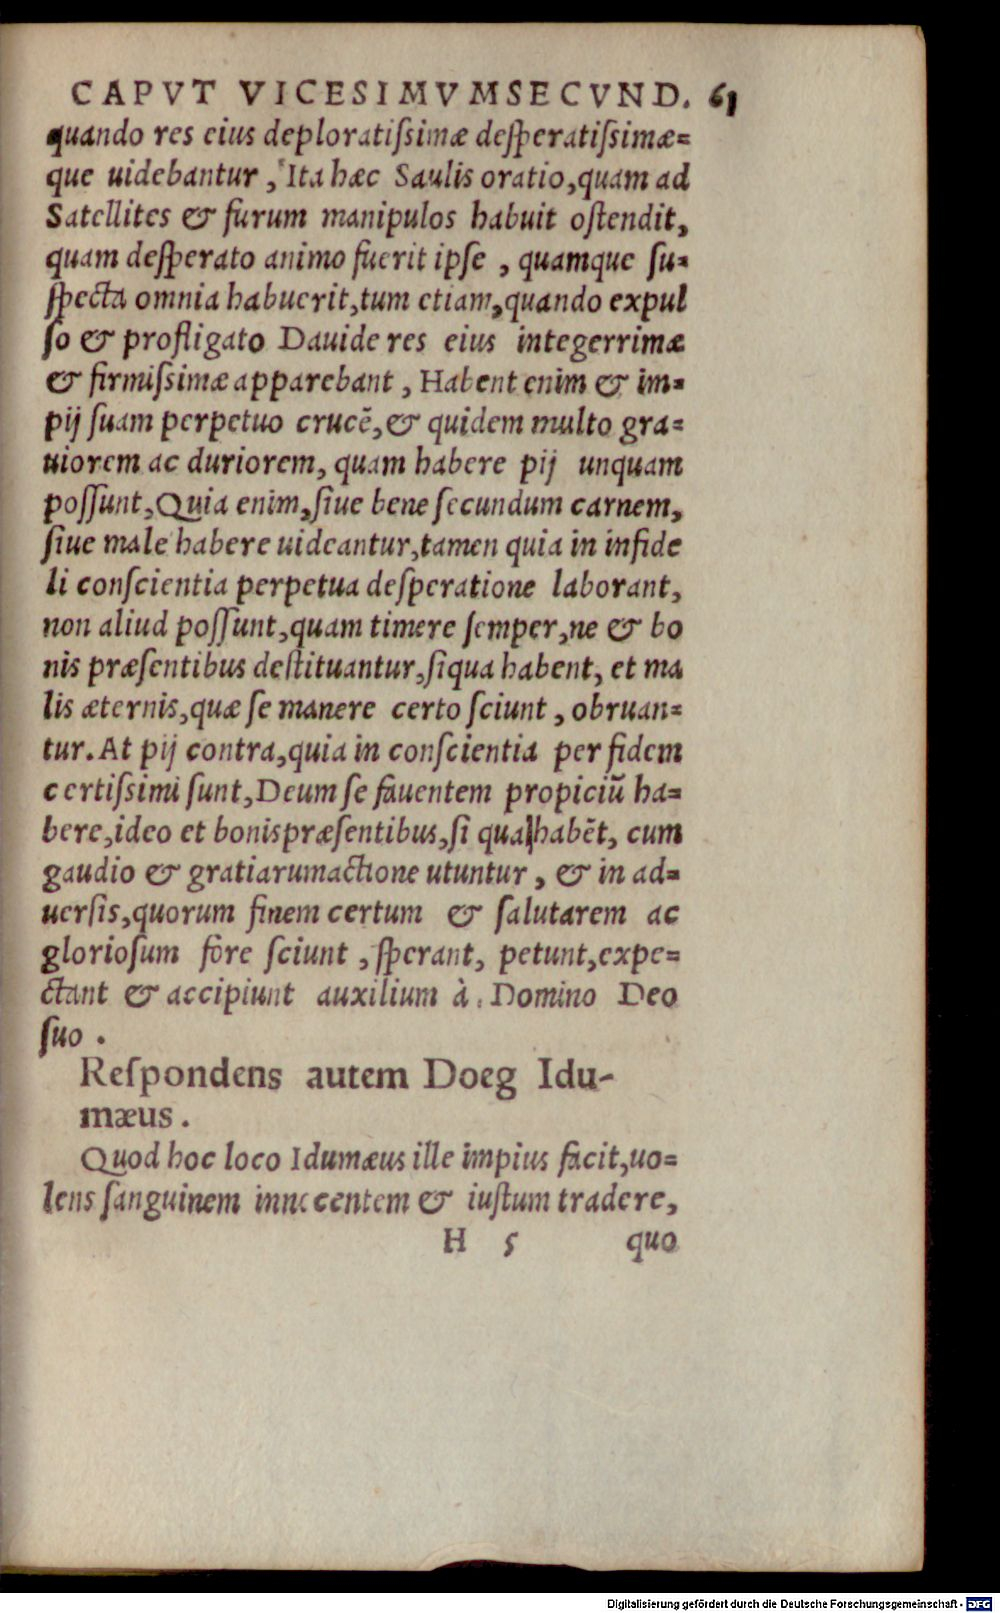 CAPVT VICESIMVMSECVND. 61
quando res eius deploratiſsimæ deſperatiſsimæ=
que uidebantur, Ita hæc Saulis oratio, quam ad
Satellites & furum manipulos habuit oſtendit,
quam deſperato animo fuerit ipſe, quamque ſu=
ſpecta omnia habuerit, tum etiam, quando expul
ſo & profligato Dauide res eius integerrimæ
& firmiſsimæ apparebant, Habent enim & im=
pij ſuam perpetuo crucē, & quidem multo gra=
uiorem ac duriorem, quam habere pij unquam
poſſunt, Quia enim, ſiue bene ſecundum carnem,
ſiue male habere uideantur, tamen quia in infide
li conſcientia perpetua deſperatione laborant,
non aliud poſſunt, quam timere ſemper, ne & bo
nis præſentibus deſtituantur, ſiqua habent, et ma
lis æternis, quæ ſe manere certo ſciunt, obruan=
tur. At pij contra, quia in conſcientia per fidem
certiſsimi ſunt, Deum ſe fauentem propiciū ha=
bere, ideo et bonis præſentibus, ſi qua habēt, cum
gaudio & gratiarumactione utuntur, & in ad=
uerſis, quorum finem certum & ſalutarem ac
glorioſum fore ſciunt, ſperant, petunt, expe=
ctant & accipiunt auxilium à Domino Deo
ſuo.
Reſpondens autem Doeg Idu-
mæus.
Quod hoc loco Idumæus ille impius facit, uo=
lens ſanguinem innocentem & iuſtum tradere,
H 5 quo
Digitalisierung gefördert durch die Deutsche Forschungsgemeinschaft - DFG